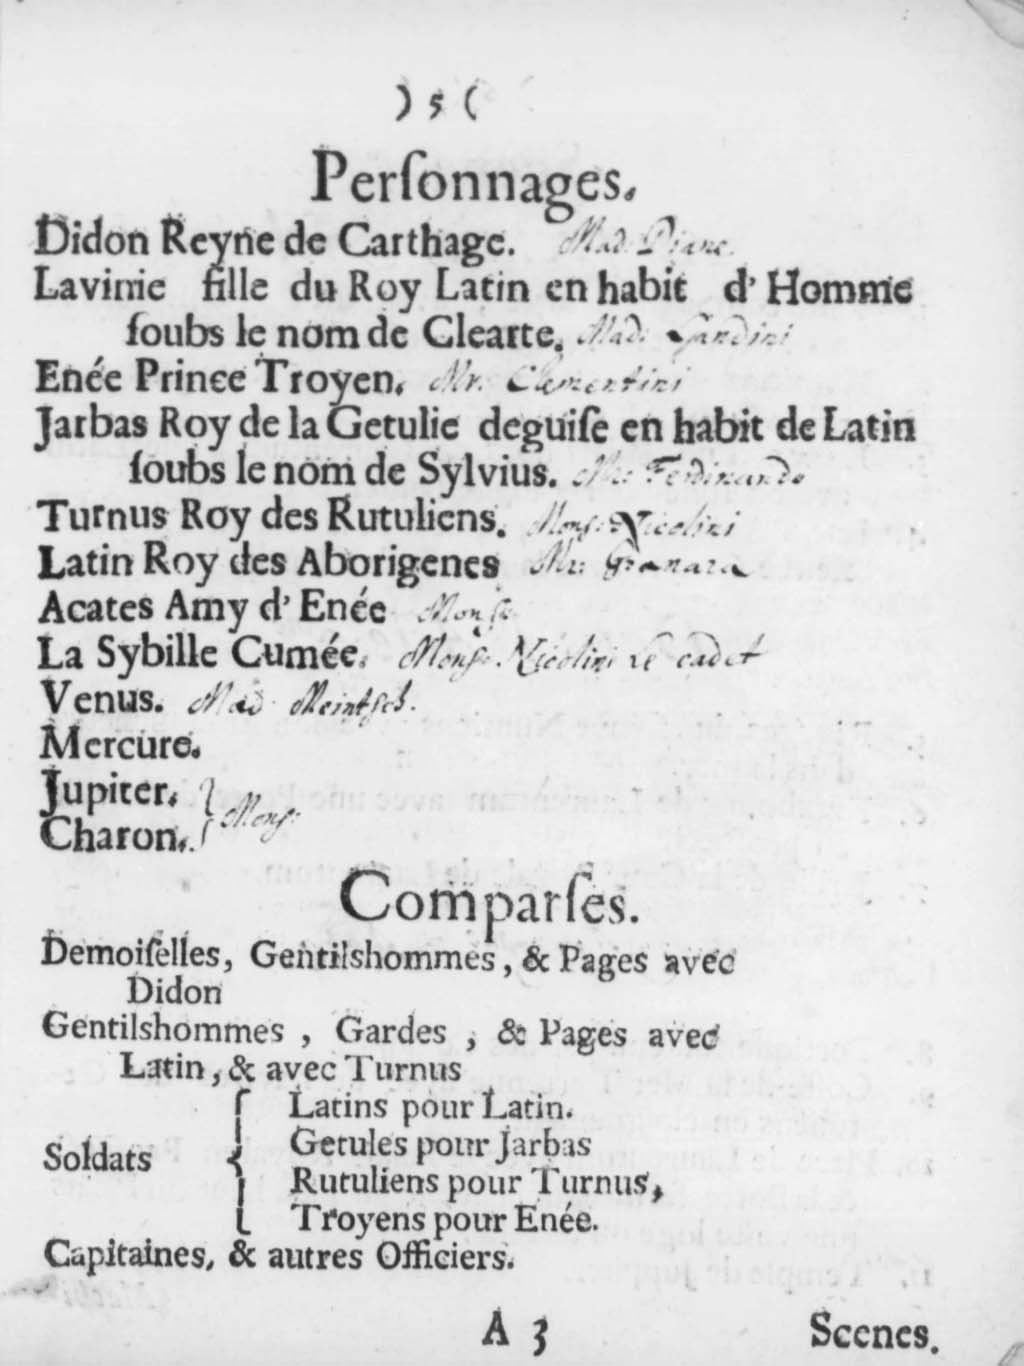 ) 5 (
Perſonnages.
Didon Reyne de Carthage. Mad. Diane.
Lavinie fille du Roy Latin en habit d' Homme
ſoubs le nom de Clearte. Mad: Landini
Enée Prince Troyen. Mr. Clementini
Jarbas Roy de la Getulie deguiſe en habit de Latin
ſoubs le nom de Sylvius. Mr: Ferdinando
Turnus Roy des Rutuliens. Monſ: Nicolini
Latin Roy des Aborigenes Mr: Granara
Acates Amy d' Enée Monſ:
La Sybille Cumée. Monſ: Nicolini Le cadet
Venus. Mad Meintſch.
Mercure.
Jupiter.
Charon. Monſ:
Comparſes.
Demoiſelles, Gentilshommes, & Pages avec
Didon
Gentilshommes , Gardes , & Pages avec
Latin, & avec Turnus
Latins pour Latin.
Getules pour Jarbas
Soldats
Rutuliens pour Turnus,
Troyens pour Enée.
Capitaines, & autres Officiers.
A 3 Scenes.